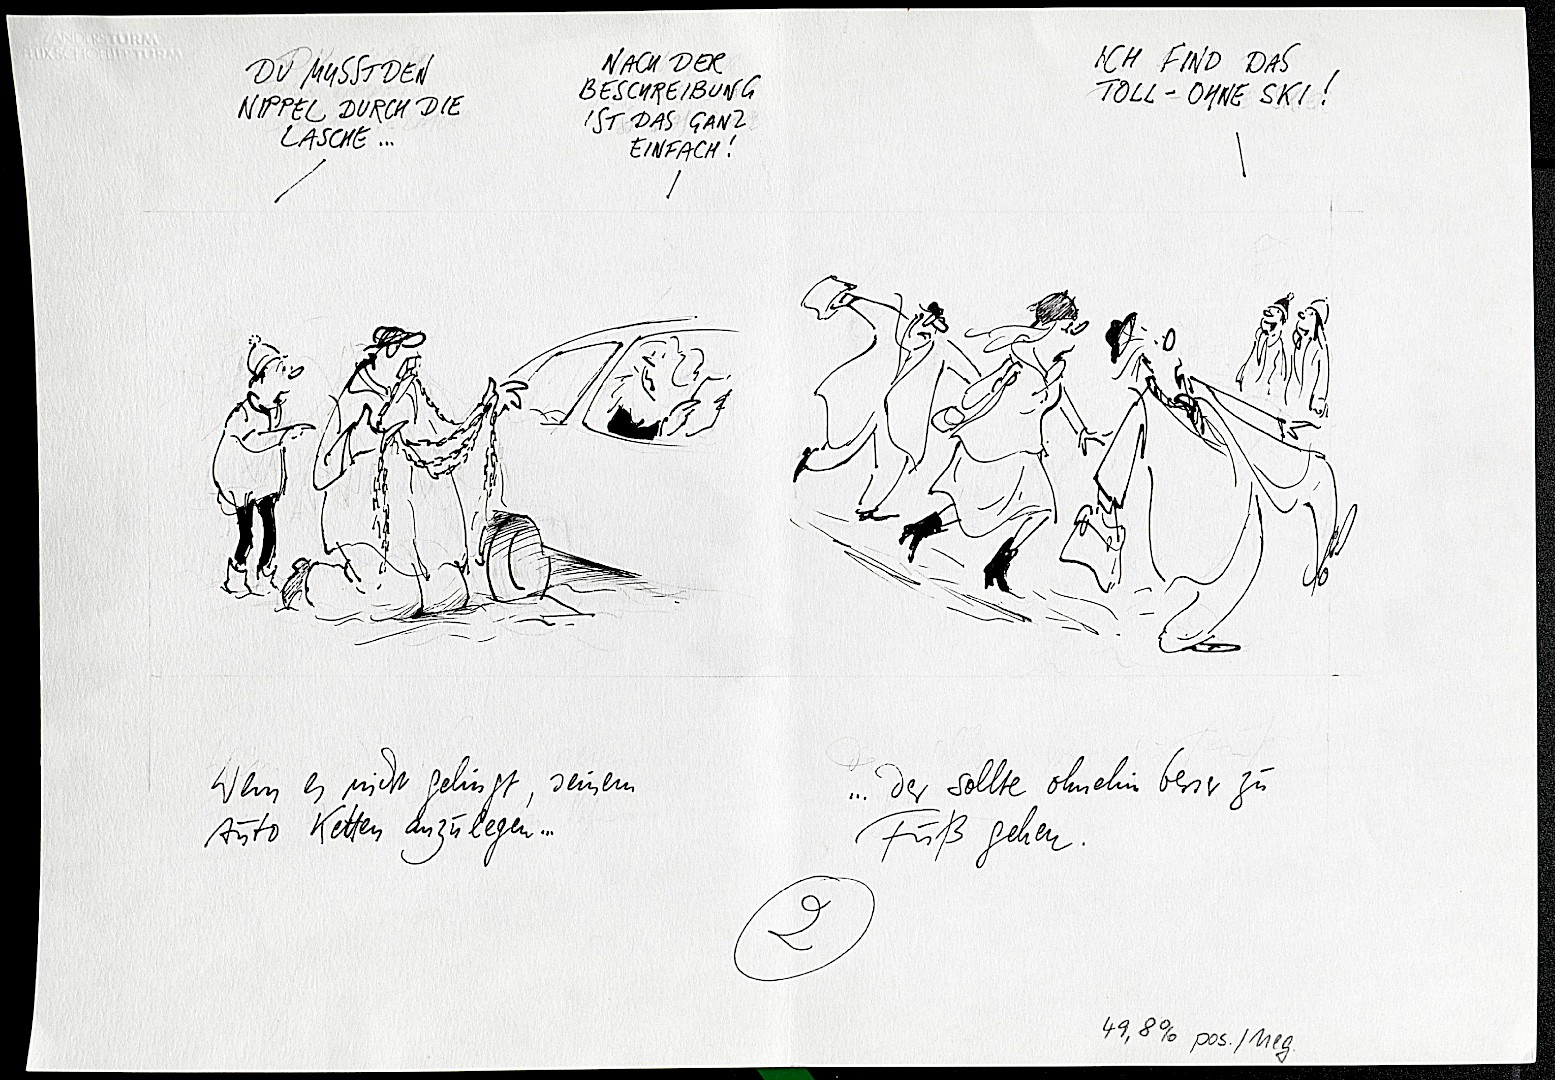 ZANDERSTURM
DU MUSST DEN
NIPPEL DURCH DIE
LASCHE...
NACH DER
BESCHREIBUNG
IST DAS GANZ
EINFACH!
ICH FIND DAS
TOLL - OHNE SKI!
Wem es nicht gelingt, seinem
Auto Ketten anzulegen...
... der sollte ohnehin besser zu
Fuß gehen.
2
49,8% pos./neg.